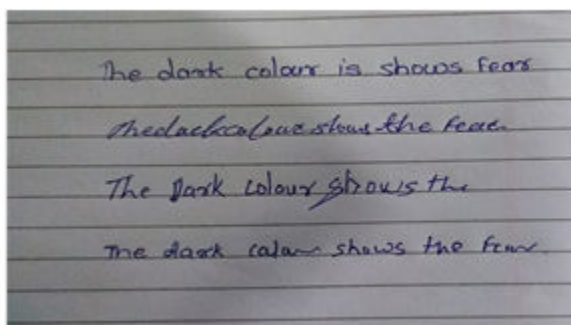 The dark colour is shows fear
The dark colour shows the fear.
The Dark colour shows the
The dark colour shows the fear.